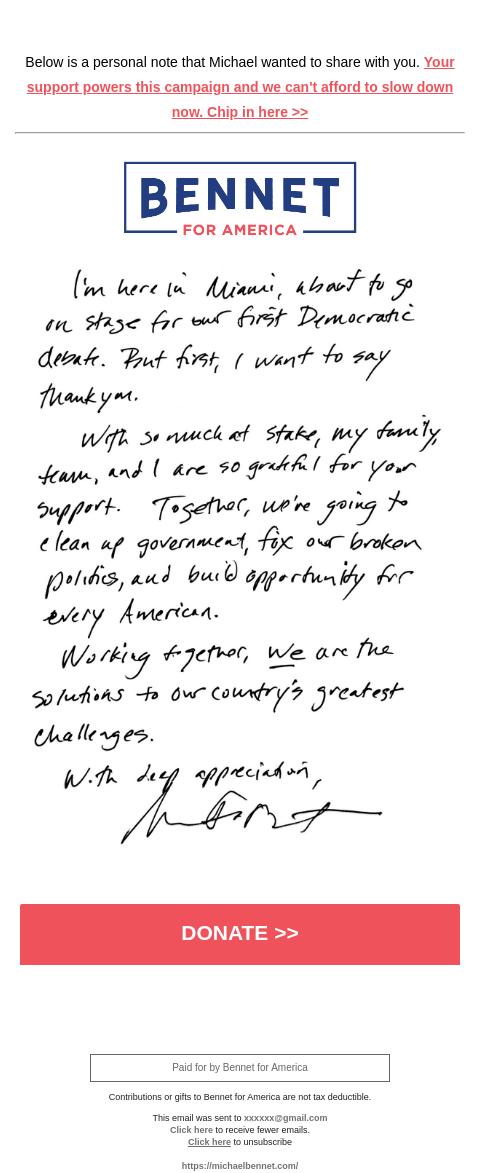 Below is a personal note that Michael wanted to share with you. Your
support powers this campaign and we can't afford to slow down
now. Chip in here >>
BENNET
FOR AMERICA
I'm here in Miami, about to go
on stage for our first Democratic
debate. But first, I want to say
thank you.
With so much at stake, my family,
team, and I are so grateful for your
support. Together, we're going to
clean up government, fix our broken
politics, and build opportunity for
every American.
Working together, we are the
solutions to our country's greatest
challenges.
With deep appreciation,
DONATE >>
Paid for by Bennet for America
Contributions or gifts to Bennet for America are not tax deductible.
This email was sent to xxxxxx@gmail.com
Click here to receive fewer emails.
Click here to unsubscribe
https://michaelbennet.com/